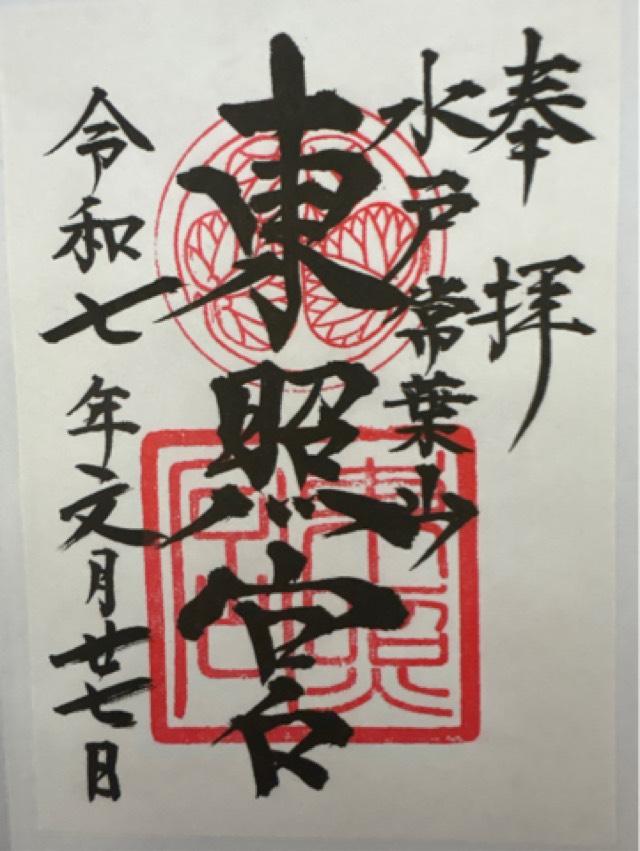 奉拝
水戸常葉山
東照宮
令和七年文月廿七日